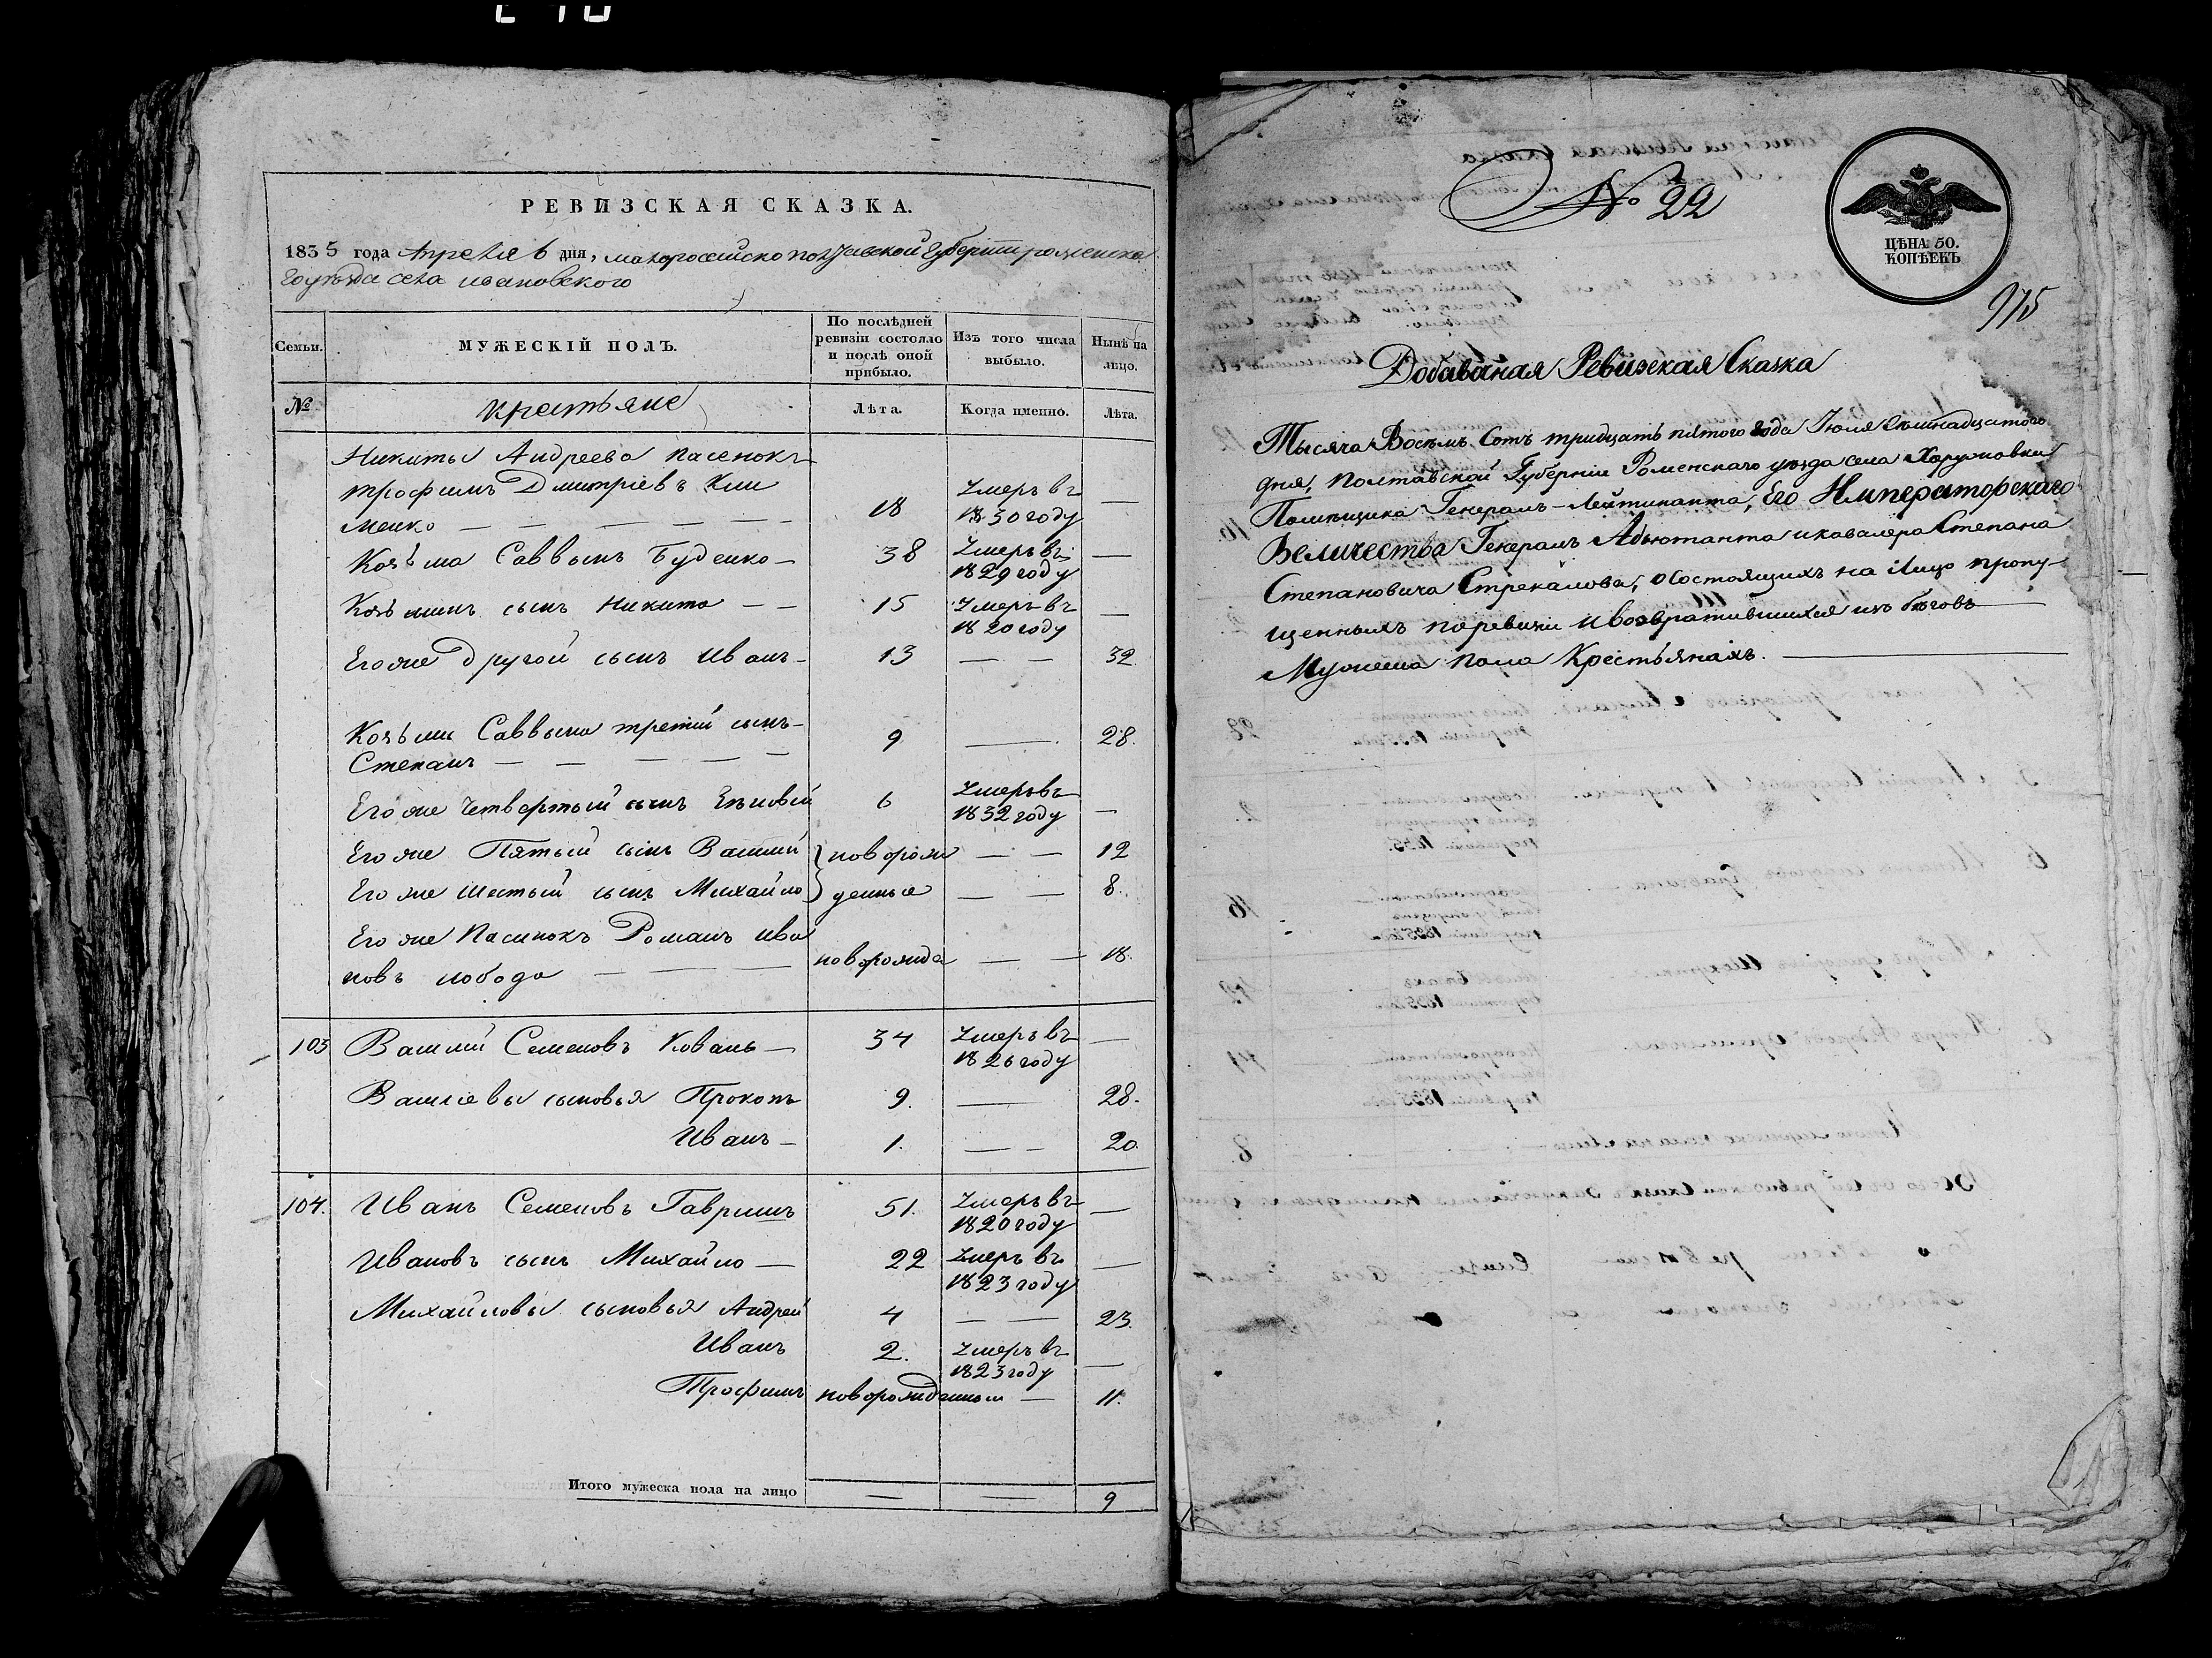 РЕВИЗСКАЯ СКАЗКА.
1835 года Апреля 6 дня, малороссийско полтавской Губернии роменска
го уезда села ивановского
Семьи. МУЖЕСКІЙ ПОЛЪ. По послѣдней ревизіи состояло и послѣ оной прибыло. Изъ того числа выбыло. Нынѣ на лицо.
№ крестьяне Лѣта. Когда именно. Лѣта.
Никиты Андреева пасенокъ
трофимъ Дмитріевъ Кли
менко — 18 Умеръ въ 1830 году —
Козьма Саввинъ Буденко — 38 Умеръ въ 1829 году —
Козьминъ сынъ Никита — — 15 Умеръ въ 1820 году —
Его же другой сынъ Иванъ — 13 — — 32.
Козьми Саввина третий сынъ —
Степанъ — 9 — 28.
Его же Четвертый сынъ 6 Умеръ въ 1832 году —
Его же Пятый сынъ Василий новорож — — 12
Его же шестый сынъ Михайло денные — — 8.
Его же Пасинокъ Романъ ива
новъ лобода — новорожде — — 18.
103 Василий Семеновъ Коваль — 34 Умеръ въ 1826 году —
Василіевы сыновья Прокопъ 9. — 28.
Иванъ — 1. — — 20.
104. Иванъ Семеновъ Гавришъ 51. Умеръ въ 1820 году —
Ивановъ сынъ Михайло — 22 Умеръ въ 1823 году —
Михайловы сыновья Андрей 4 — — 23.
Иванъ 2. Умеръ въ 1823 году —
Трофимъ новорожденный — 11.
Итого мужеска пола на лицо — — 9
№ 22
ЦѢНА 50.
КОПѢЕКЪ
975
Добавочная Ревизская Сказка
Тысяча Восемь Сотъ тридцать пятого года Іюля
дня, Полтавской Губерніи Роменскаго уезда села Хоружовки
Помѣщика Генералъ-Лейтинанта, Его Императорскаго
Величества Генералъ Адьютанта и кавалера Степана
Степановича Стрекалова, о Состоящихъ на лицо пропу-
щенныхъ поревизии и возвратившихся изъ бѣговъ
Мужеска пола Крестьянахъ. —